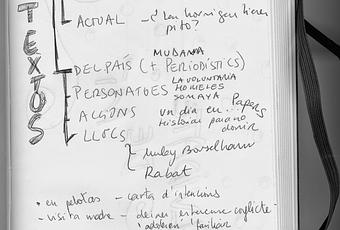 TEXTOS
ACTUAL - ¿Las hormigas tienen
pito?
MUDANZA
DEL PAÍS (+ PERIODISTICS)
PERSONATGES LA VOLUNTARIA
HOMELES
SOMAYA
ACCIONS un día en... Papers
Historias para no
dormir
LLOCS
Muley Bousselham
Rabat
• en pelotas - carta d'intencions
- visita madre - deixar entreveure conflicte
familiar